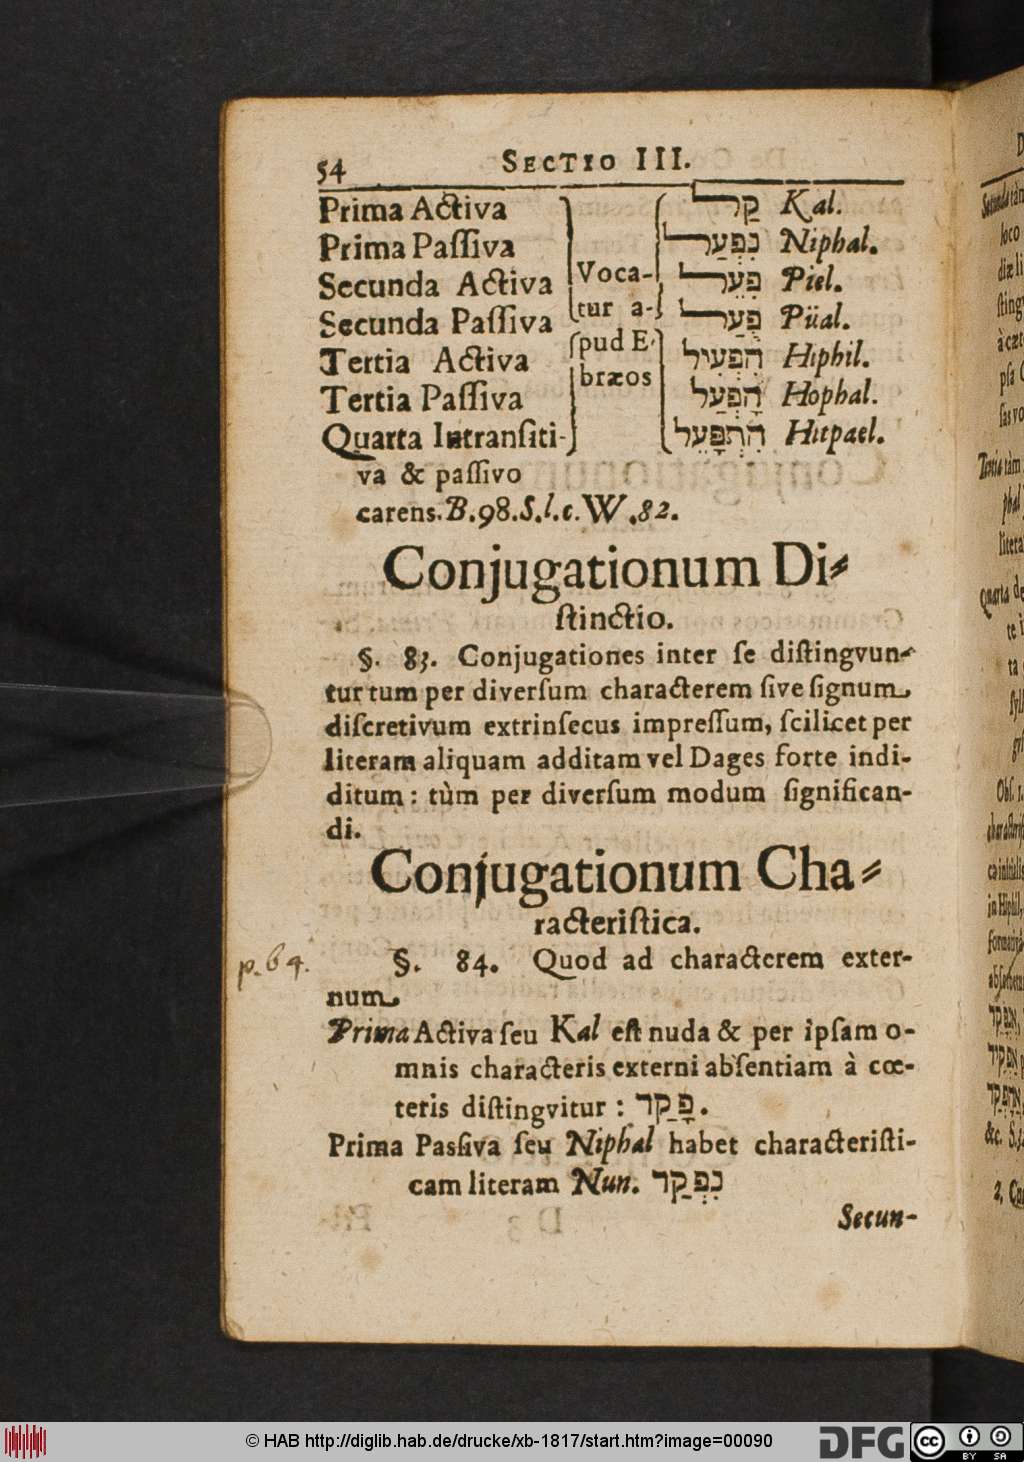 54 SECTIO III.
Prima Activa קַל Kal.
Prima Paſſiva נִפְעַל Niphal.
Secunda Activa Voca- פִּעֵל Piel.
Secunda Paſſiva tur a- פֻּעַל Püal.
Tertia Activa pud E- הִפְעִיל Hiphil.
Tertia Paſſiva bræos הָפְעַל Hophal.
Quarta Intranſiti- הִתְפָּעֵל Hitpael.
va & paſſivo
carens. B. 98. S. l. c. W. 82.
Conjugationum Di⸗
ſtinctio.
§. 83. Conjugationes inter ſe diſtingvun-
tur tum per diverſum characterem ſive ſignum
diſcretivum extrinſecus impreſſum, ſcilicet per
literam aliquam additam vel Dages forte indi-
ditum: tùm per diverſum modum ſignifican-
di.
Conjugationum Cha⸗
racteriſtica.
p. 64. §. 84. Quod ad characterem exter-
num
Prima Activa ſeu Kal eſt nuda & per ipſam o-
mnis characteris externi abſentiam à cœ-
teris diſtingvitur: פָּקַד.
Prima Passiva ſeu Niphal habet characteriſti-
cam literam Nun. נִפְקַד
Secun-
© HAB http://diglib.hab.de/drucke/xb-1817/start.htm?image=00090
DFG
cc BY SA